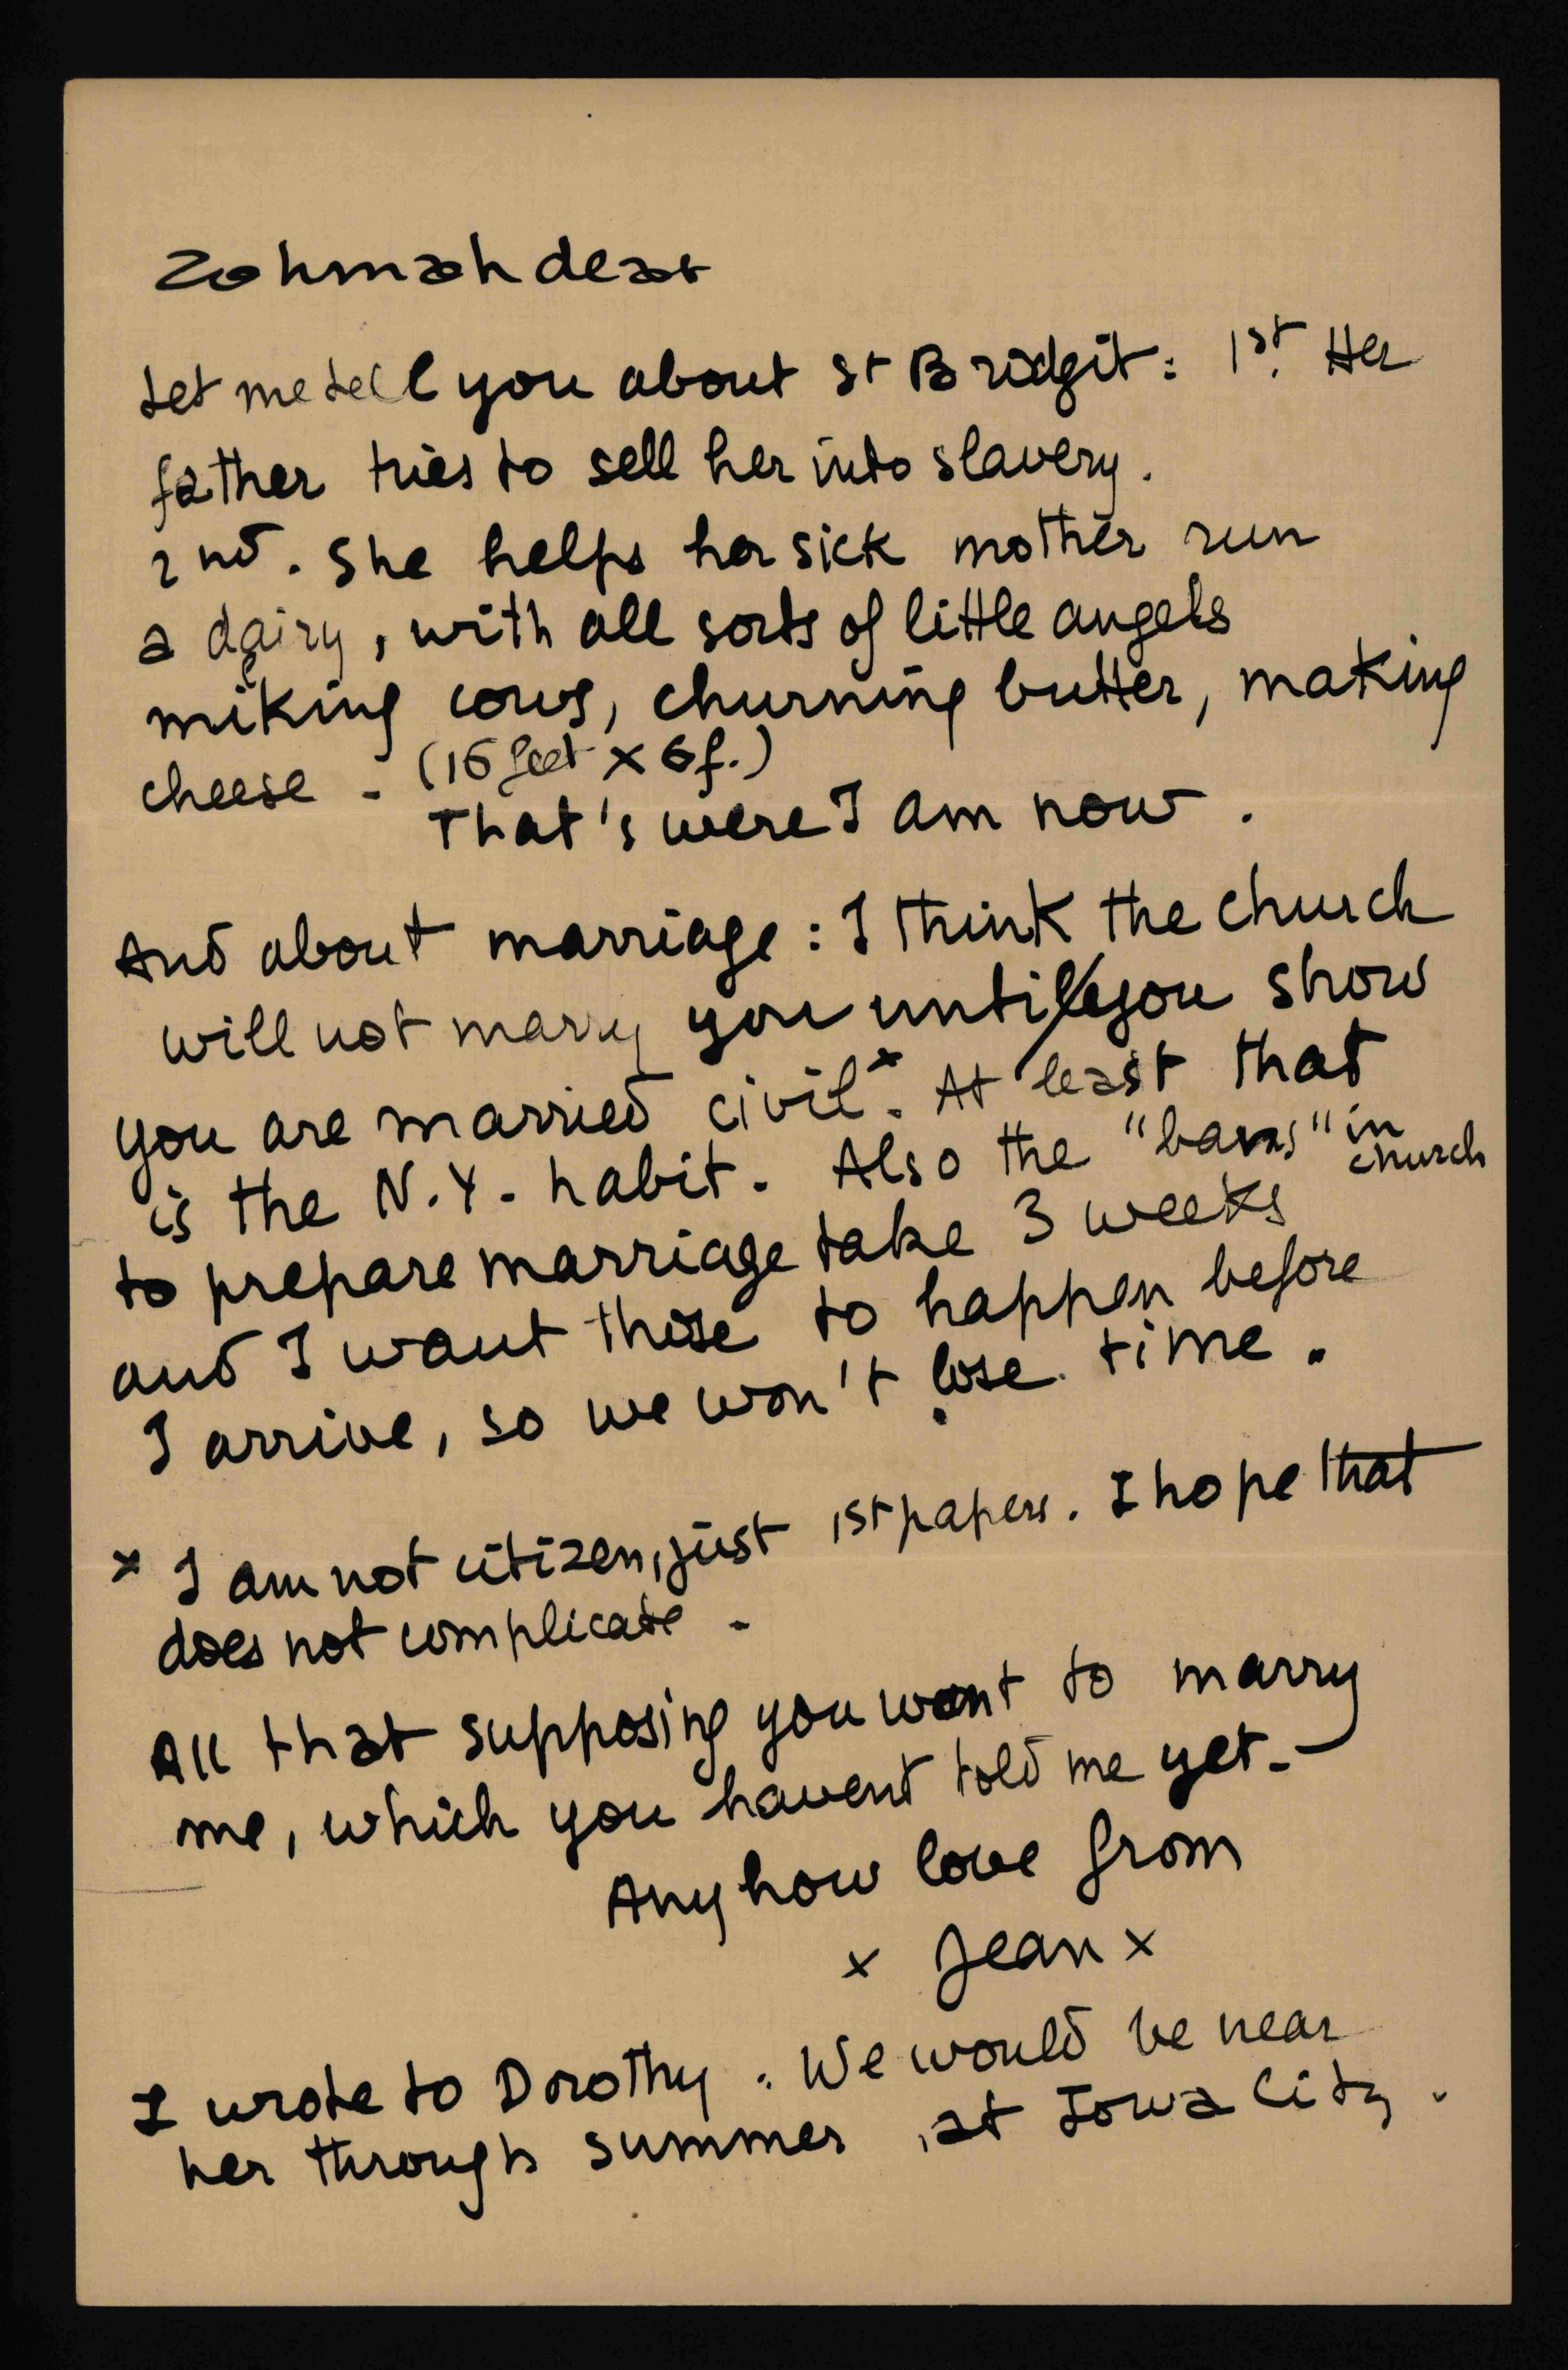 Zohmah dear
Let me tell you about St Bridgit: 1st. Her
father tries to sell her into slavery.
2nd. She helps her sick mother run
a dairy, with all sorts of little angels
milking cows, churning butter, making
cheese - (16 feet x 6 f.)
That's were I am now.
And about marriage: I think the church
will not marry you until you show
you are married civil x. At least that
is the N.Y. habit. Also the "bans" in church
to prepare marriage take 3 weeks
and I want those to happen before
I arrive, so we won't lose time.
x I am not citizen, just 1st papers. I hope that
does not complicate -
All that supposing you want to marry
me, which you havent told me yet. -
Anyhow love from
x Jean x
I wrote to Dorothy. We would be near
her through summer, at Iowa City.